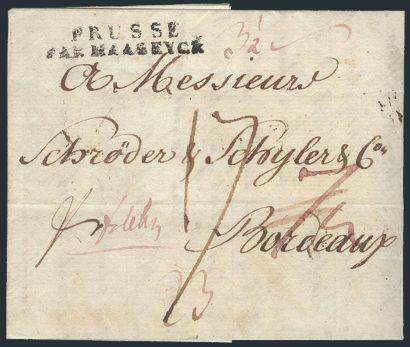 PRUSSE
PAR MAASEYCK
A Messieurs
Schröder & Schyler & Co
Bordeaux